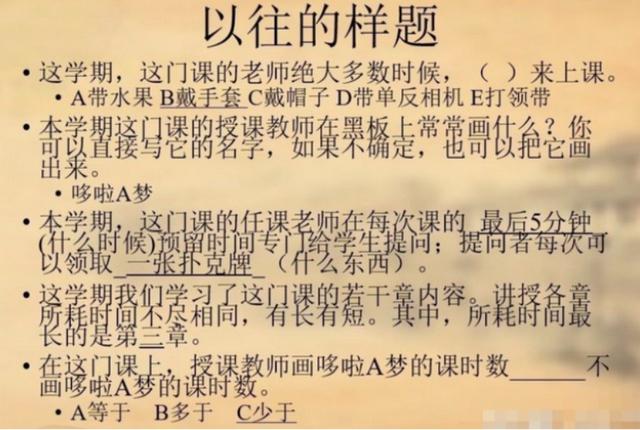 以往的样题
• 这学期，这门课的老师绝大多数时候，（ ）来上课。
• A带水果 B戴手套 C戴帽子 D带单反相机 E打领带
• 本学期这门课的授课教师在黑板上常常画什么？你
可以直接写它的名字，如果不确定，也可以把它画
出来。
• 哆啦A梦
• 本学期，这门课的任课老师在每次课的_最后5分钟_
(什么时候)预留时间专门给学生提问；提问者每次可
以领取_一张扑克牌_（什么东西）。
• 这学期我们学习了这门课的若干章内容。讲授各章
所耗时间不尽相同，有长有短。其中，所耗时间最
长的是第三章。
• 在这门课上，授课教师画哆啦A梦的课时数______不
画哆啦A梦的课时数。
• A等于 B多于 C少于